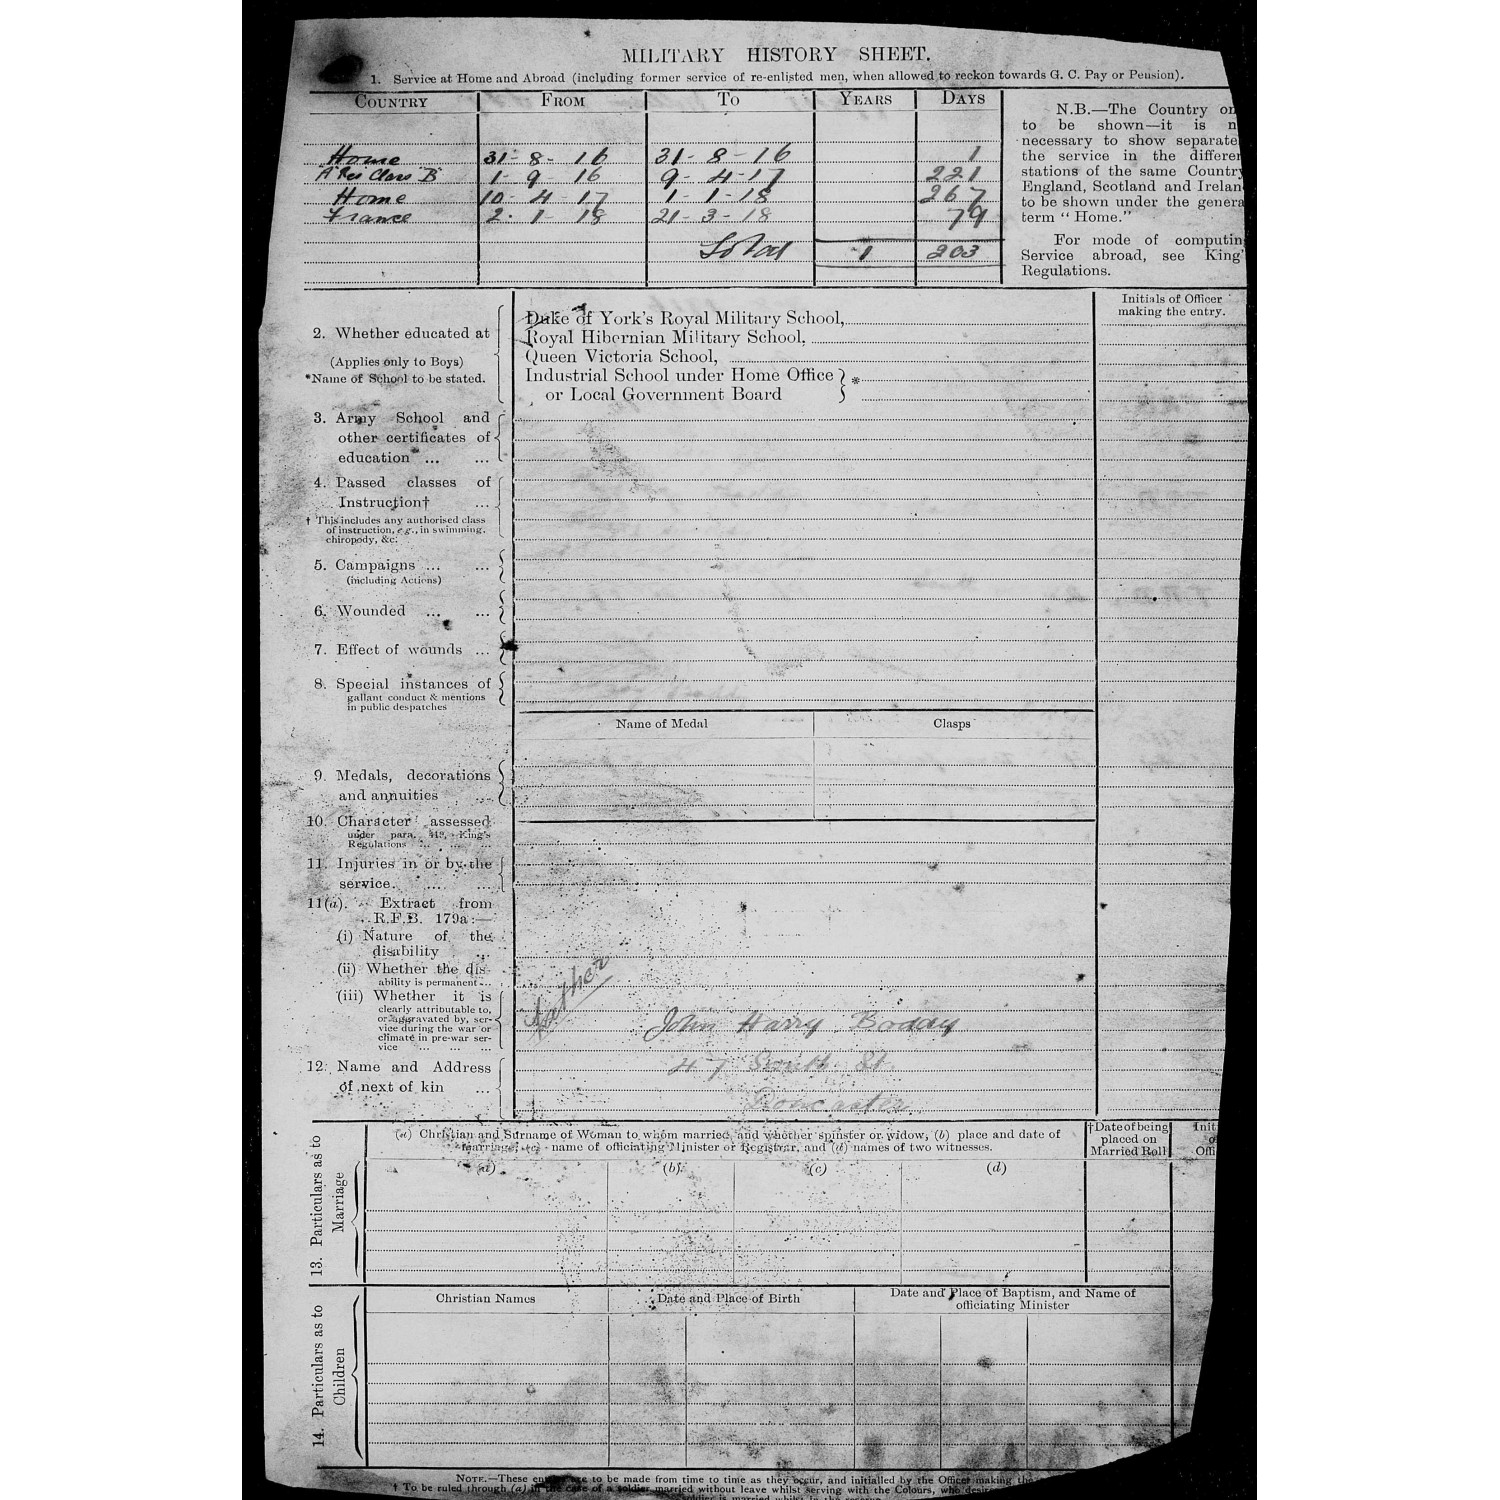 MILITARY HISTORY SHEET.
1. Service at Home and Abroad (including former service of re-enlisted men, when allowed to reckon towards G. C. Pay or Pension).
COUNTRY FROM TO YEARS DAYS
Home 31-8-16 31-8-16 1
A Res Class B 1-9-16 9-4-17 221
Home 10-4-17 1-1-18 267
France 2-1-18 21-3-18 79
Total 1 203
N.B.—The Country on
to be shown—it is n
necessary to show separate
the service in the differen
stations of the same Country
England, Scotland and Irelan
to be shown under the genera
term "Home."
For mode of computin
Service abroad, see King'
Regulations.
Initials of Officer
making the entry.
2. Whether educated at
(Applies only to Boys)
*Name of School to be stated.
Duke of York's Royal Military School,
Royal Hibernian Military School,
Queen Victoria School,
Industrial School under Home Office
or Local Government Board } *
3. Army School and
other certificates of
education ... ...
4. Passed classes of
Instruction† ...
† This includes any authorised class
of instruction, e.g., in swimming,
chiropody, &c.
5. Campaigns ... ...
(including Actions)
6. Wounded ... ...
7. Effect of wounds ...
8. Special instances of
gallant conduct & mentions
in public despatches
Name of Medal Clasps
9. Medals, decorations
and annuities ...
10. Character assessed
under para. King's
Regulations ... ... ...
11. Injuries in or by the
service. ... ...
11(a). Extract from
R.F.B. 179a:—
(i) Nature of the
disability ...
(ii) Whether the dis-
ability is permanent ...
(iii) Whether it is
clearly attributable to,
or aggravated by, ser-
vice during the war or
climate in pre-war ser-
vice ... ... ...
12. Name and Address
of next of kin ...
Father
John Harry Boddy
47 South St.
Doncaster
13. Particulars as to
Marriage
(a) Christian and Surname of Woman to whom married, and whether spinster or widow, (b) place and date of
marriage, (c) name of officiating Minister or Registrar, and (d) names of two witnesses.
(a) (b) (c) (d)
†Date of being
placed on
Married Roll
Init
o
Offi
14. Particulars as to
Children
Christian Names Date and Place of Birth
Date and Place of Baptism, and Name of
officiating Minister
NOTE.—These to be made from time to time as they occur, and initialled by the Officer making the
† To be ruled through (a) in the case of a soldier married without leave whilst serving with the Colours, who
soldier is married whilst in the reserve